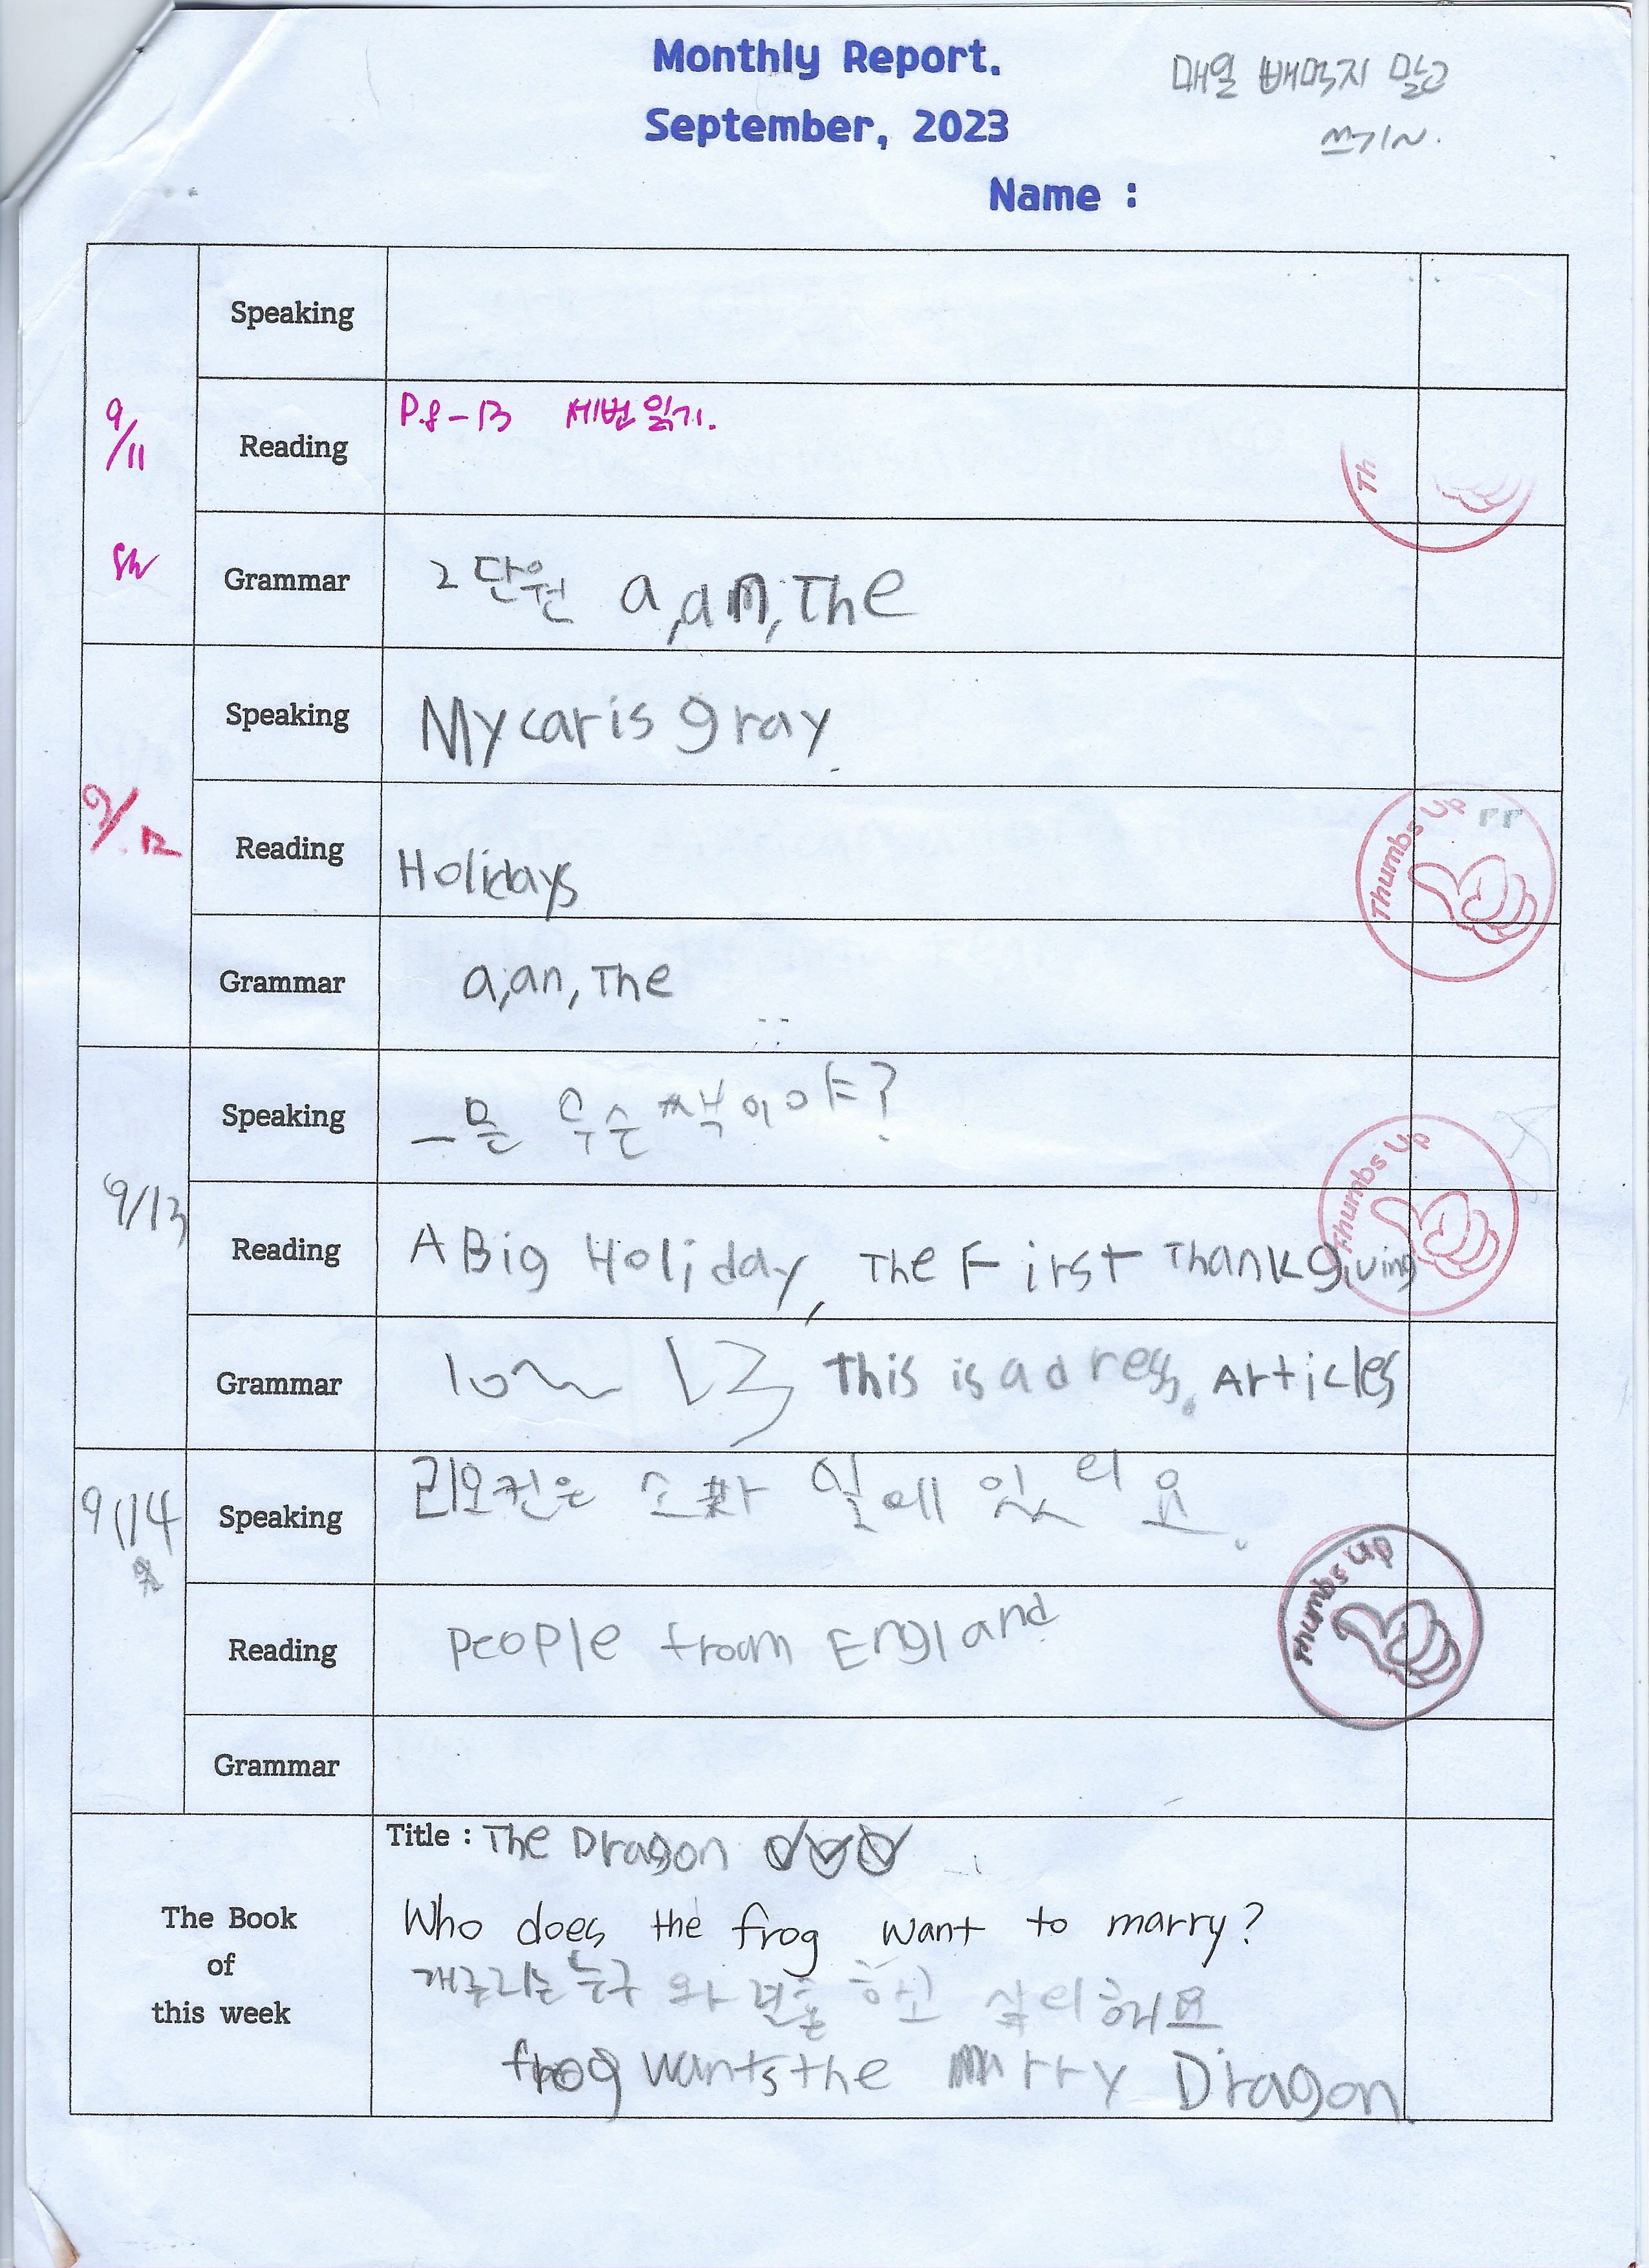 Monthly Report.
September, 2023
매일 빼먹지 말고
쓰기~.
Name :
Speaking
9/11
Reading
P.8-13 세번 읽기.
Th
Grammar
2단원 a, an, The
Speaking
My car is gray.
9/12
Reading
Holidays
Thumbs Up
Grammar
a, an, The
Speaking
_은 무슨 색이야?
9/13
Reading
A Big Holiday, The First Thankgiving
Thumbs Up
Grammar
10~ 13 This is a dress. Articles
9/14
Speaking
리모컨은 소파 밑에 있어요.
Reading
People from England
Thumbs Up
Grammar
The Book
of
this week
Title : The Dragon
Who does the frog want to marry?
개구리는 누구와 결혼하고 싶어해요
frog wants the marry Dragon.